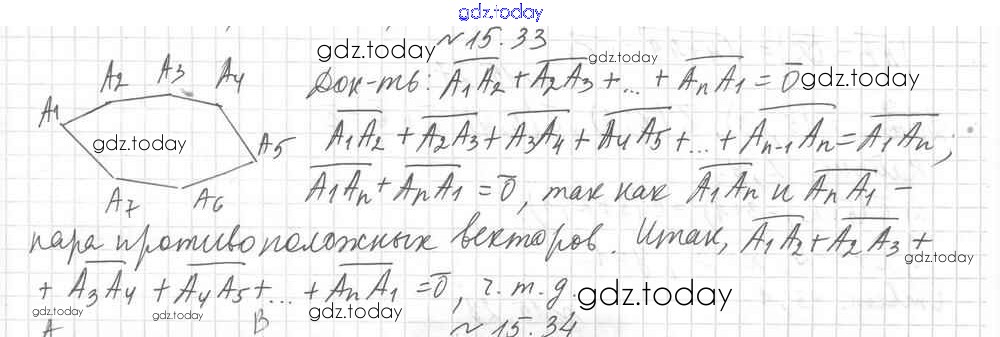 gdz.today
№15.33
gdz.today
gdz.today
Док-ть: A1A2 + A2A3 + ... + AnA1 = 0
gdz.today
A1 A2 A3 A4 A5 A6 A7
gdz.today
A1A2 + A2A3 + A3A4 + A4A5 + ... + An-1An = A1An;
A1An + AnA1 = 0, так как A1An и AnA1 –
пара противоположных векторов. Итак, A1A2 + A2A3 +
gdz.today
+ A3A4 + A4A5 + ... + AnA1 = 0, ч.т.д.
gdz.today
gdz.today
gdz.today
gdz.today
A B
№15.34